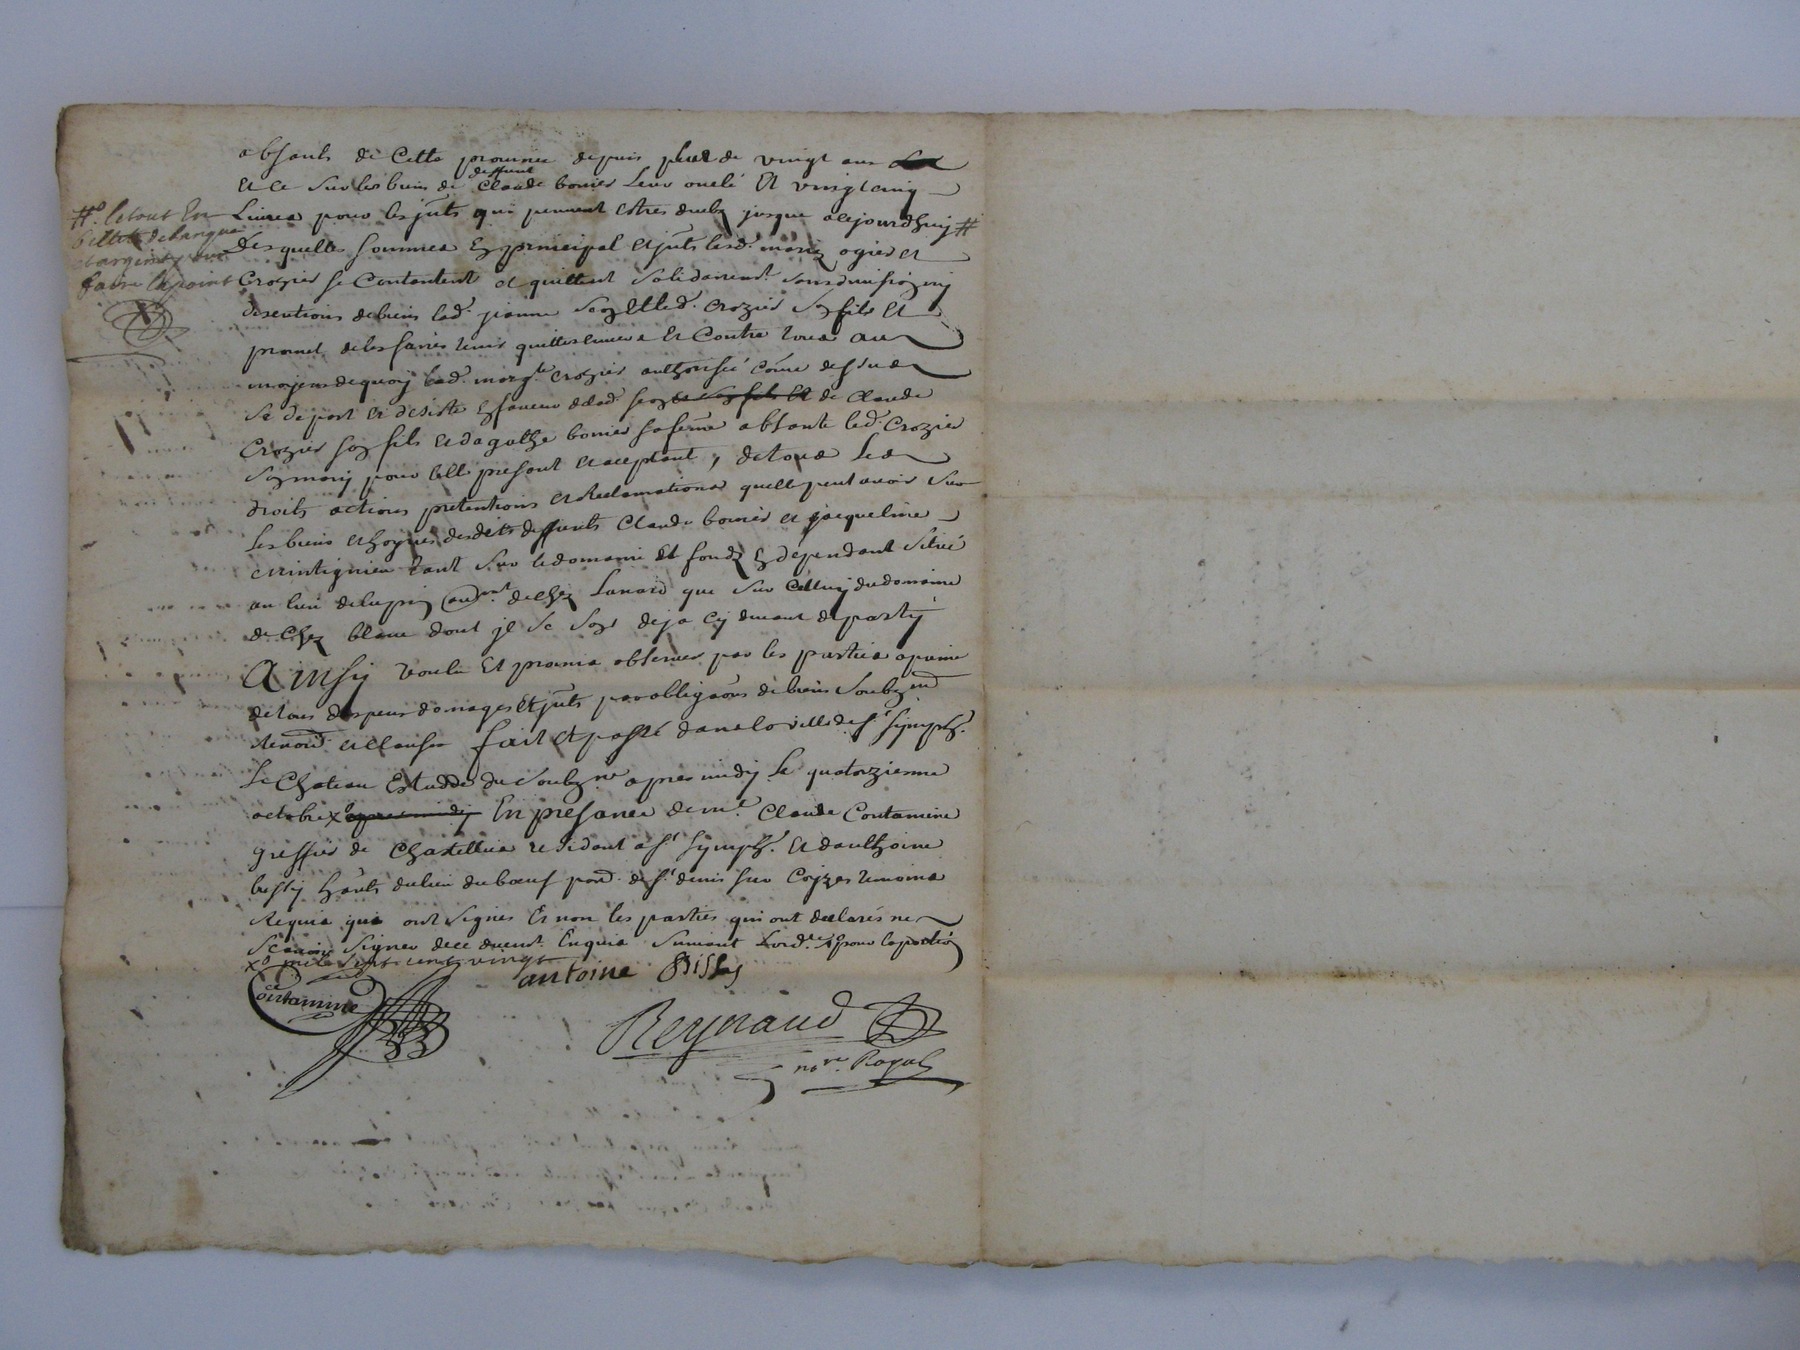 absants de Cette province depuis plus de vingt ans
et ce sur les biens de deffunt Claude bonier leur oncle Et vingt cinq
Livres pour les jnts qui peuvent estres deubz jusque a cejourdhuy #
#o le tout En
billets de banque
et argent pour
faire le point
Desquelles sommes En principal et jnts lesd. mariez ogier et
Crozier se Contentent et quittent solidairemt. sans division ny
disentions de biens lad. jeanne et led. Crozier son fils Et
promet de les faires tenir quittes envers Et Contre tous au
moyens de quoy lad. marg.te Crozier authorisée come dessus
se depart et desiste En faveur de lad. son fils Et de Claude
Crozier son fils et dagathe bonier sa feme absante led. Crozier
son mary pour elle present et aceptant, de tous Les
droits actions pretentions et Reclamations quelle peut avoir sur
Les biens et hoyries desdits deffunts Claude bonier et jacqueline
tant sur le domaine Et fondz En dependant situé
au lieu de lupin de chez Lanard que sur Celluy du domaine
de Chez blanc dont jl se sont deja cy devant departy
Ainsy voulu Et promis observer par les parties a peine
de tous despens domages Et jnts par obligaons de biens soubzmd
Renond. et clauses fait Et passé dans la ville de st. symph.
Le Chateau Estudde du soubz.ne apres midy Le quatorzieme
octobre xo apres midy En presance de me. Claude Contamine
greffier de Chatellus residant a st. symph. Et danthoine
bissy hants du lieu du boeuf parr. de st. denis sur Coyzes temoins
Requis qui ont signés Et non les parties qui ont declarés ne
scavoir signer de ce duemt. Enquis suivant Lord.ce xo pour la partie
xo mile sept cent vingt
antoine Bissy
Contamine
Reynaud
nore. Royal